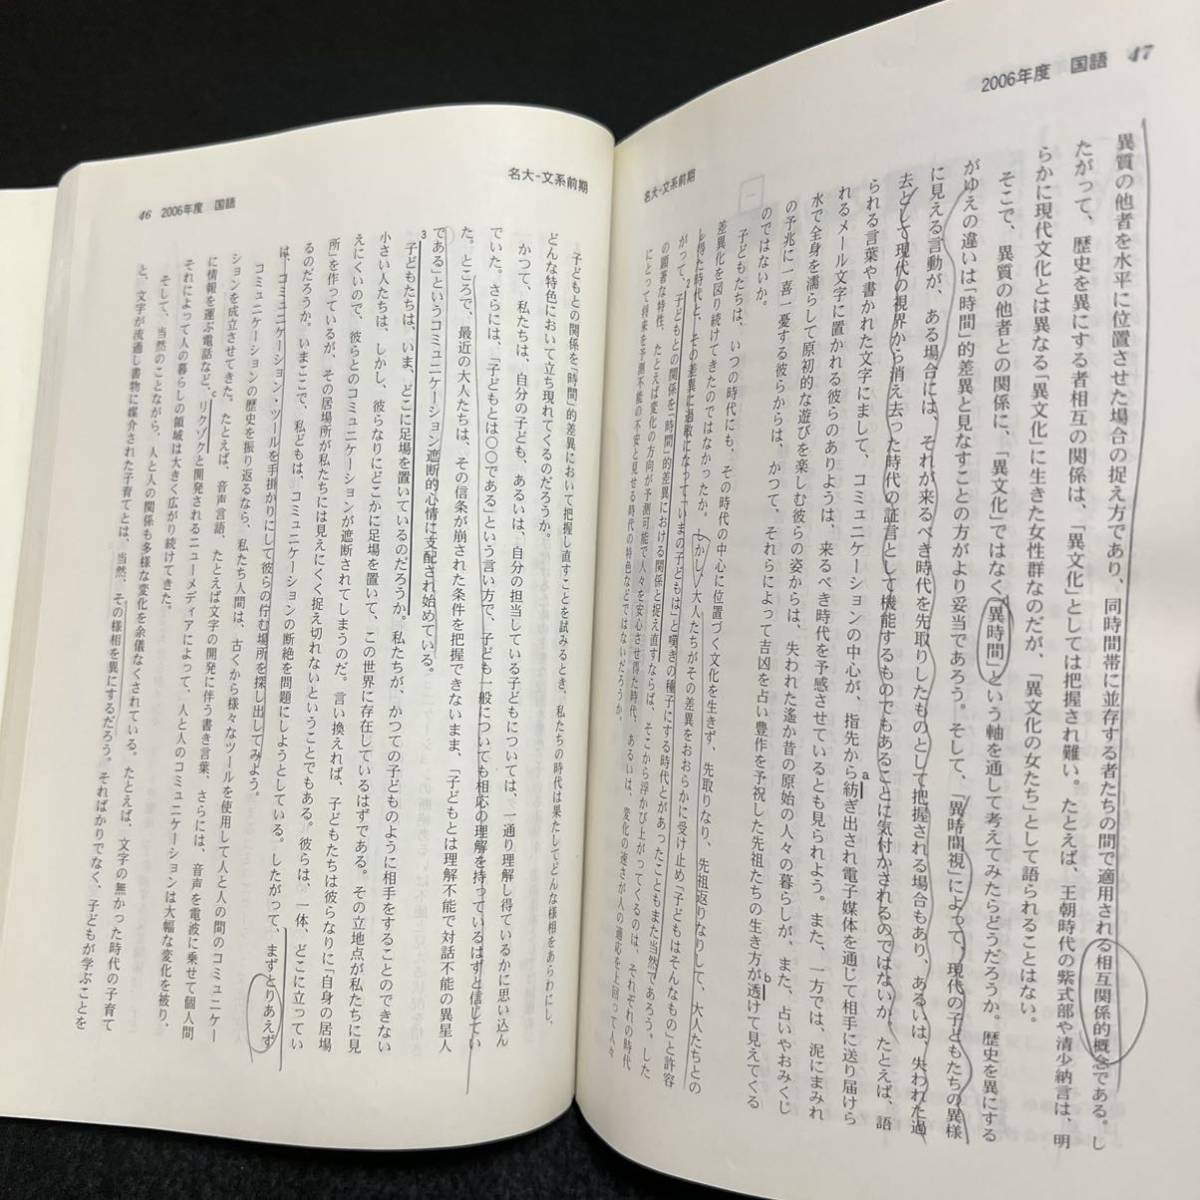 2006年度　国語　47
異質の他者を水平に位置させた場合の捉え方であり、同時間帯に並存する者たちの間で適用される相互関係的概念である。し
たがって、歴史を異にする者相互の関係は、「異文化」としては把握され難い。たとえば、王朝時代の紫式部や清少納言は、明
らかに現代文化とは異なる「異文化」に生きた女性群なのだが、「異文化の女たち」として語られることはない。
そこで、異質の他者との関係に、「異文化」ではなく「異時間」という軸を通して考えてみたらどうだろうか。歴史を異にする
がゆえの違いは「時間」的差異と見なすことの方がより妥当であろう。そして、「異時間視」によって、現代の子どもたちの異様
に見える言動が、ある場合には、それが来るべき時代を先取りしたものとして把握される場合もあり、あるいは、失われた過
去として現代の視界から消え去った時代の証言として機能するものでもあることに気付かされるのではないか。たとえば、語
られる言葉や書かれた文字にまして、コミュニケーションの中心が、指先から紡ぎ出され電子媒体を通じて相手に送り届けら
a
れるメール文字に置かれる彼らのありようは、来るべき時代を予感させているとも見られよう。また、一方では、泥にまみれ
水で全身を濡らして原初的な遊びを楽しむ彼らの姿からは、失われた遙か昔の原始の人々の暮らしが、また、占いやおみくじ
の予兆に一喜一憂する彼らからは、かつて、それらによって吉凶を占い豊作を予祝した先祖たちの生き方が透けて見えてくる
b
のではないか。
子どもたちは、いつの時代にも、その時代の中心に位置づく文化を生きず、先取りなり、先祖返りなりして、大人たちとの
差異化を図り続けてきたのではなかったか。しかし、大人たちがその差異をおおらかに受け止め「子どもはそんなもの」と許容
し得た時代と、その差異に過敏になって「いまの子どもは」と嘆きの種子にする時代とがあったこともまた当然であろう。した
2
がって、子どもとの関係を「時間」的差異における関係と捉え直すならば、そこから浮かび上がってくるのは、それぞれの時代
の顕著な特性、たとえば変化の方向が予測可能で人々を安心させ得た時代、あるいは、変化の速さが人の適応を上回って人々
にとって将来を予測不能の不安と見せる時代の特色などではないだろうか。
名大-文系前期
一
名大-文系前期
46　2006年度　国語
子どもとの関係を「時間」的差異において把握し直すことを試みるとき、私たちの時代は果たしてどんな様相をあらわにし、
どんな特色において立ち現れてくるのだろうか。
かつて、私たちは、自分の子ども、あるいは、自分の担当している子どもについては、一通り理解し得ているかに思い込ん
でいた。さらには、「子どもとは〇〇である」という言い方で、子ども一般についても相応の理解を持っているはずと信じてい
た。ところで、最近の大人たちは、その信条が崩された条件を把握できないまま、「子どもとは理解不能で対話不能の異星人
である」というコミュニケーション遮断的心情に支配され始めている。
3
子どもたちは、いま、どこに足場を置いているのだろうか。私たちが、かつての子どものように相手をすることのできない
小さい人たちは、しかし、彼らなりにどこかに足場を置いて、この世界に存在しているはずである。その立地点が私たちに見
えにくいので、彼らとのコミュニケーションが遮断されてしまうのだ。言い換えれば、子どもたちは彼らなりに「自身の居場
所」を作っているが、その居場所が私たちには見えにくく捉え切れないということでもある。彼らは、一体、どこに立ってい
るのだろうか。いまここで、私どもは、コミュニケーションの断絶を問題にしようとしている。したがって、まずとりあえず
は、コミュニケーション・ツールを手掛かりにして彼らの佇む場所を探し出してみよう。
コミュニケーションの歴史を振り返るなら、私たち人間は、古くから様々なツールを使用して人と人の間のコミュニケー
ションを成立させてきた。たとえば、音声言語、たとえば文字の開発に伴う書き言葉、さらには、音声を電波に乗せて個人間
に情報を運ぶ電話など。リクゾクと開発されるニューメディアによって、人と人のコミュニケーションは大幅な変化を被り、
c
それによって人の暮らしの領域は大きく広がり続けてきた。
そして、当然のことながら、人と人の関係も多様な変化を余儀なくされている。たとえば、文字の無かった時代の子育て
と、文字が流通し書物に媒介された子育てとは、当然、その様相を異にするだろう。そればかりでなく、子どもが学ぶことを